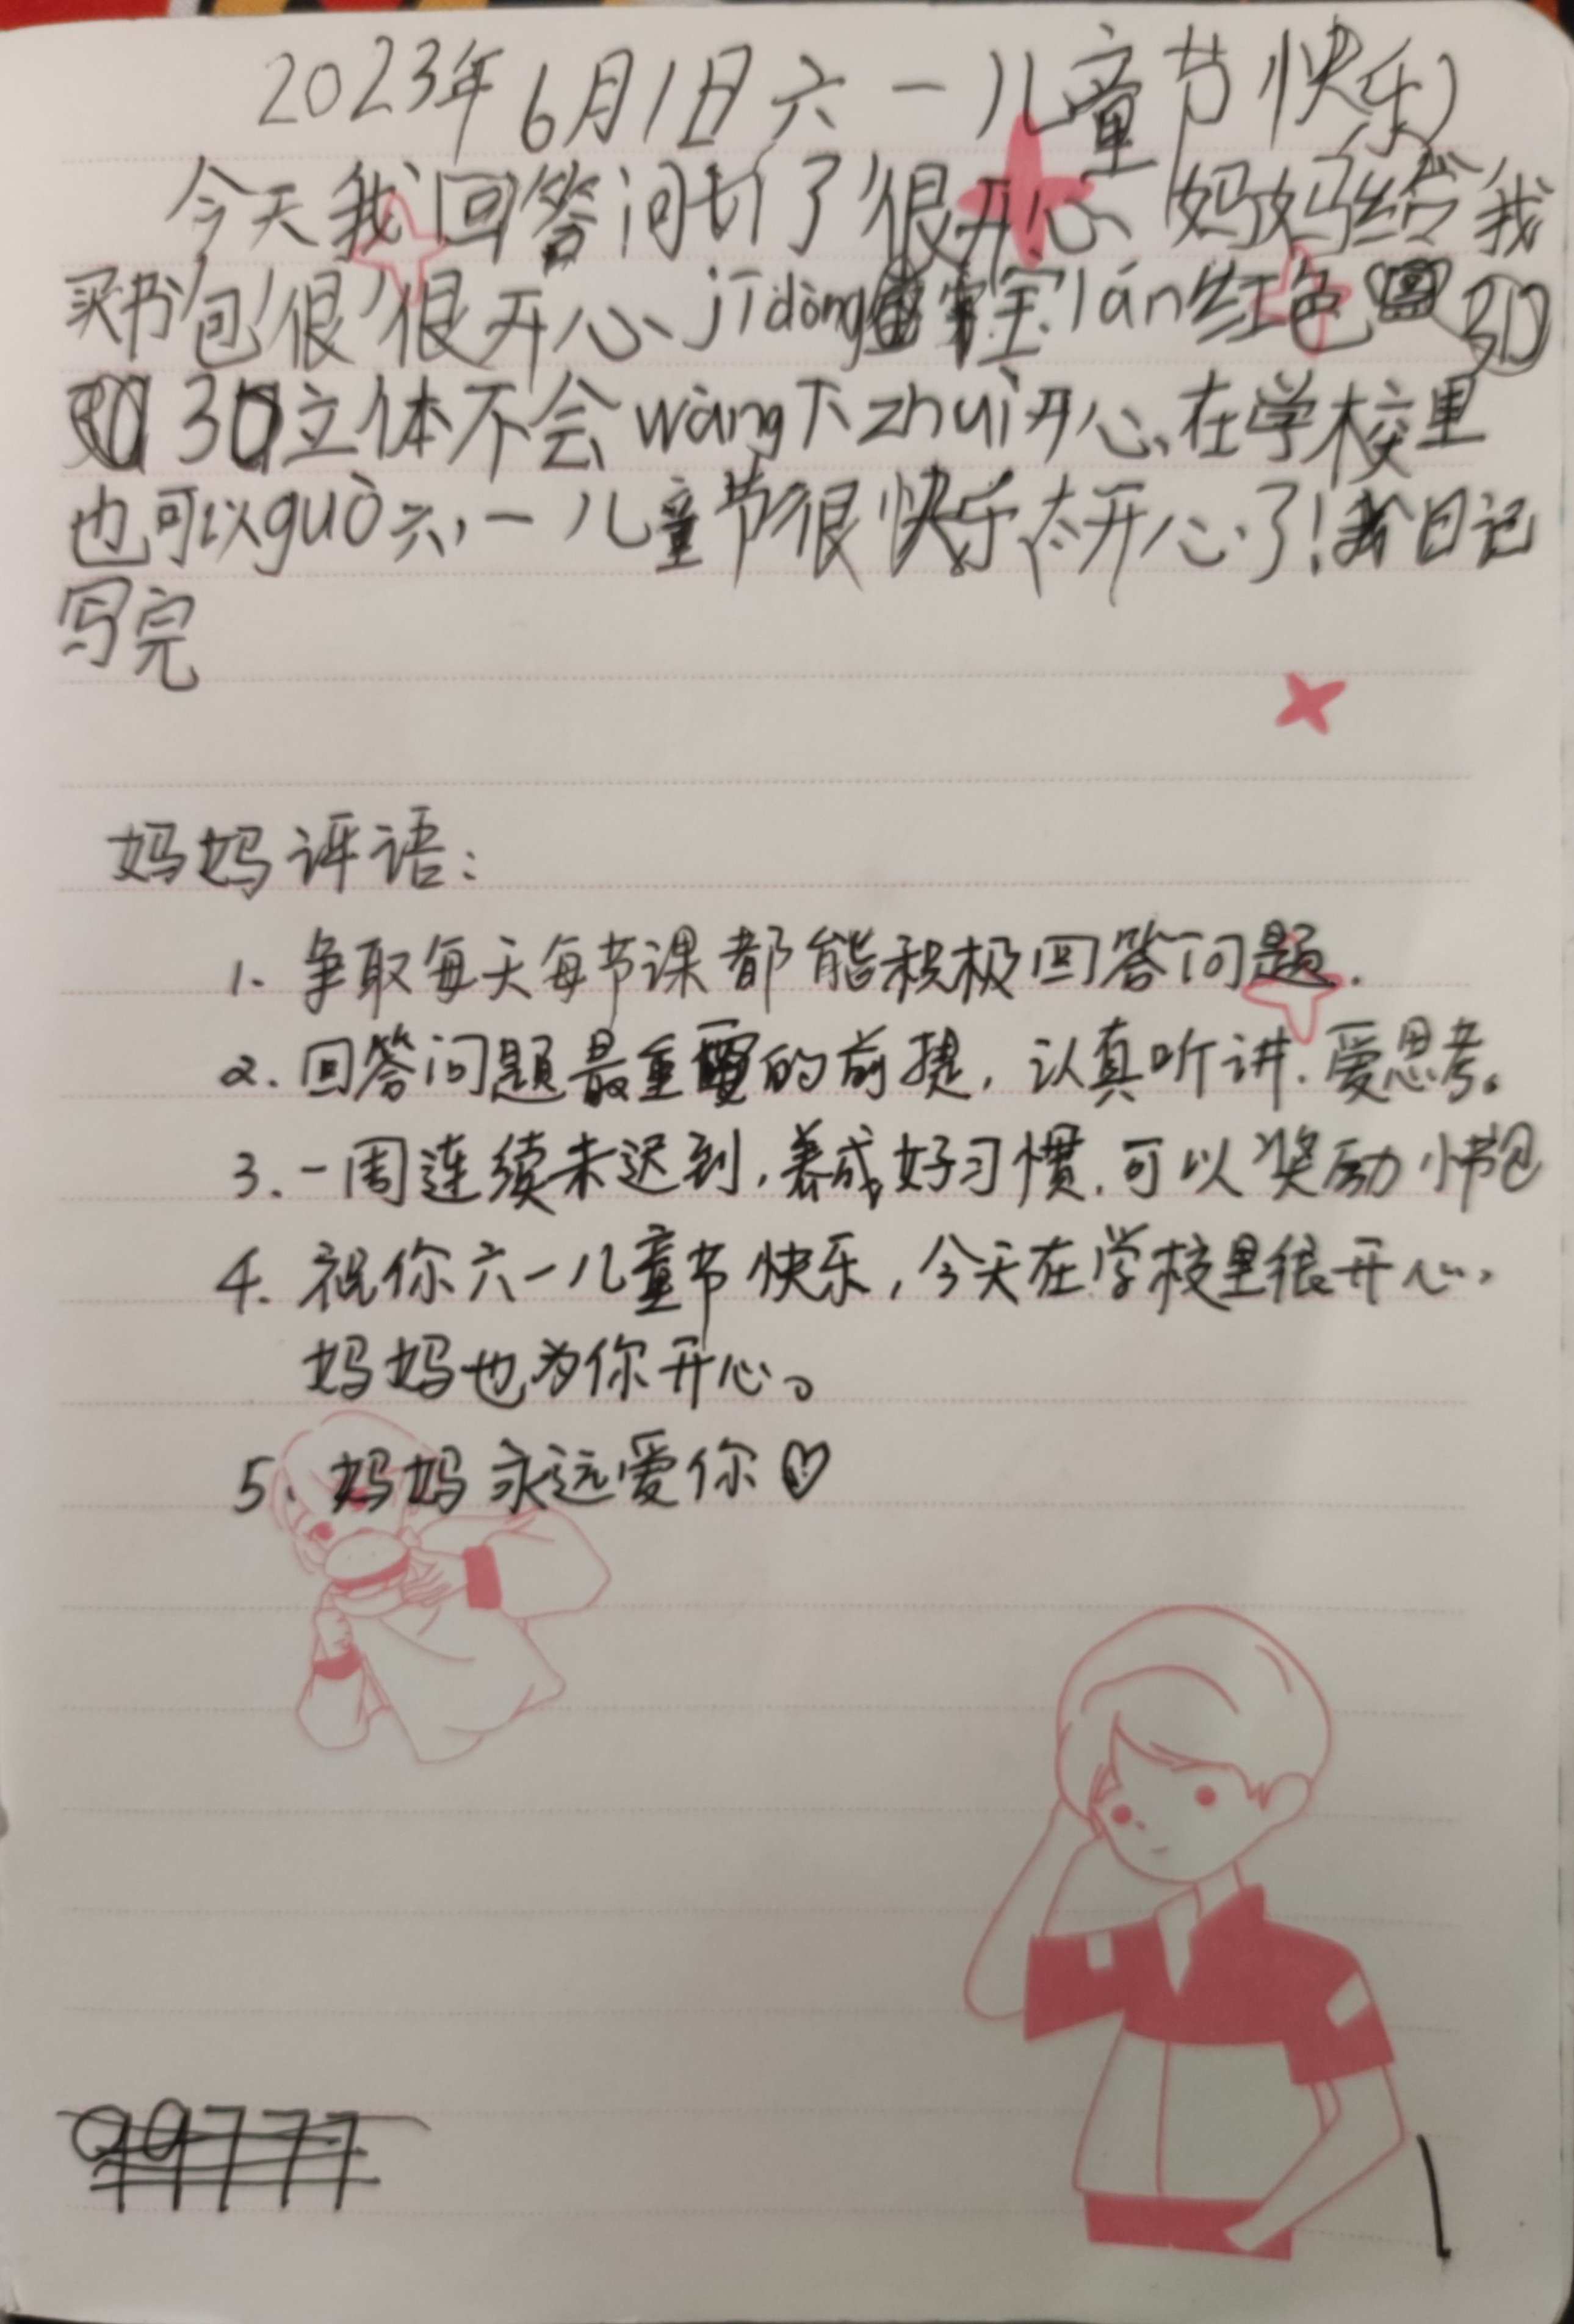 2023年6月1日六一儿童节快乐
今天我回答问了很开心、妈妈给我
买书包很很开心、jīdòng宝lán红色3D
3D立体不会wàng下zhuì开心、在学校里
也可以guò六一儿童节很快乐太开心了！我日记
写完
妈妈评语：
1. 争取每天每节课都能积极回答问题.
2. 回答问题最重要的前提，认真听讲.爱思考。
3. 一周连续未迟到，养成好习惯.可以奖励小书包
4. 祝你六一儿童节快乐，今天在学校里很开心，
妈妈也为你开心。
5、妈妈永远爱你♡